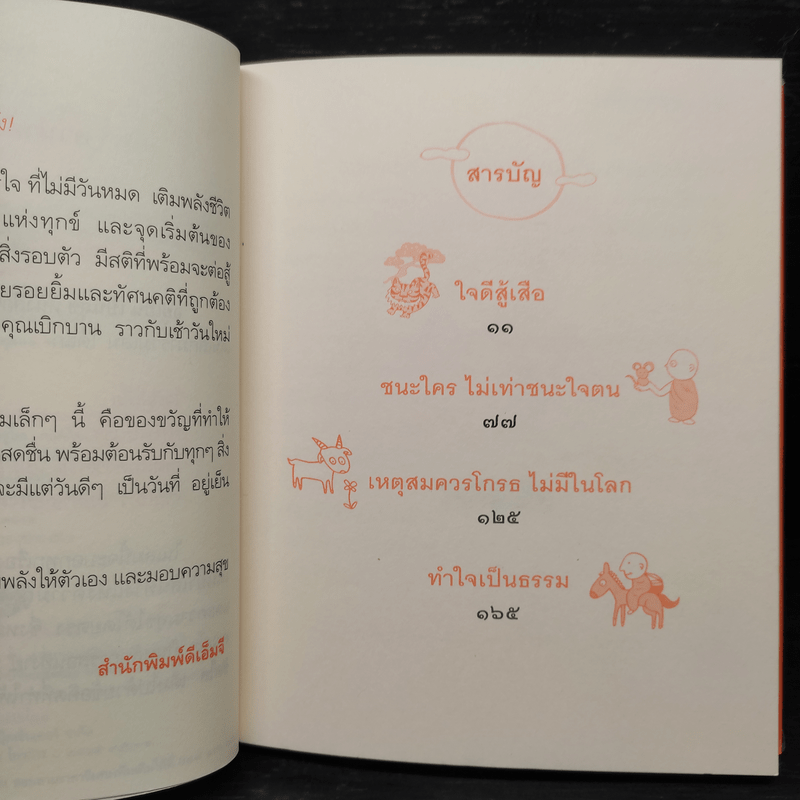 ง!
ใจ ที่ไม่มีวันหมด เติมพลังชีวิต
แห่งทุกข์ และจุดเริ่มต้นของ
สิ่งรอบตัว มีสติที่พร้อมจะต่อสู้
ยรอยยิ้มและทัศนคติที่ถูกต้อง
คุณเบิกบาน ราวกับเช้าวันใหม่
มเล็กๆ นี้ คือของขวัญที่ทำให้
สดชื่น พร้อมต้อนรับกับทุกๆ สิ่ง
จะมีแต่วันดีๆ เป็นวันที่ อยู่เย็น
พลังให้ตัวเอง และมอบความสุข
สำนักพิมพ์ดีเอ็มจี
สารบัญ
ใจดีสู้เสือ
๑๑
ชนะใคร ไม่เท่าชนะใจตน
๗๗
เหตุสมควรโกรธ ไม่มีในโลก
๑๒๕
ทำใจเป็นธรรม
๑๖๕